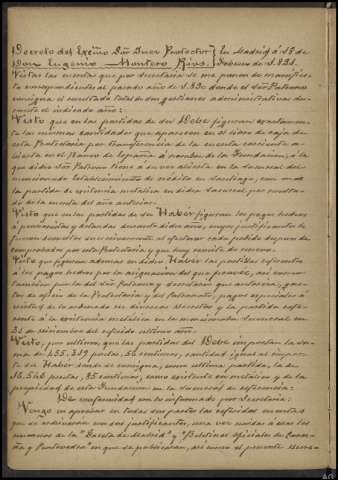 Decreto del Exmo Sor Juez Protector } En Madrid á 15 de
Don Eugenio Montero Rios. Febrero de 1.831.
Vistas las cuentas que por Secretaría se me ponen de manifies-
to correspondientes al pasado año de 1.830 donde el Sor Patrono
consigna el resultado total de sus gestiones administrativas du-
rante el indicado año:
Visto que en las partidas de su Debe figuran exactamen-
te las mismas cantidades que aparecen en el libro de caja de
esta Protectoría por transferencia de la cuenta corriente a-
bierta en el Banco de España á nombre de la Fundacion, á la
que dicho Sor Patrono tiene á su vez abierta en la Sucursal del
mencionado Establecimiento de crédito en Santiago, con mas
la partida de existencia metálica en dicha Sucursal por resulta-
do de la cuenta del año anterior:
Visto que en las partidas de su Haber figuran los pagos hechos
á pensionistas y dotandas durante dicho año, cuyos justificantes
fueron remitidos al efectuar cada pedido de fondos
comprobados por esta Protectoría y que hoy remite de nuevo:
Visto que figuran ademas en dicho Haber las partidas referentes
á los pagos hechos por la asignacion del que provée, asi como
tambien por la del Sor Patrono y Secretario que autoriza, gas-
tos de oficio de la Protectoría y del Patronato, pagos especiales á
virtud de lo ordenado en diversos decretos y la partida refe-
rente á la existencia metálica en la mencionada Sucursal en
31 de Diciembre del referido último año:
Visto, por ultimo, que las partidas del Debe importan la su-
ma de 455.319 pesetas, 50 centimos, cantidad igual al impor-
te del Haber donde se consigna, como última partida, la de
16.546 pesetas, 35 centimos, como existencia en metálico y de la
propiedad de esta Fundacion en la Sucursal de referencia:
De conformidad con lo informado por Secretaría:
Vengo en aprobar en todas sus partes las referidas cuentas
que se archivarán con sus justificantes, una vez unidos á ellas los
números de la "Gaceta de Madrid" y "Boletines Oficiales de Coru-
ña y Pontevedra" en que se publicaran, asi como el presente